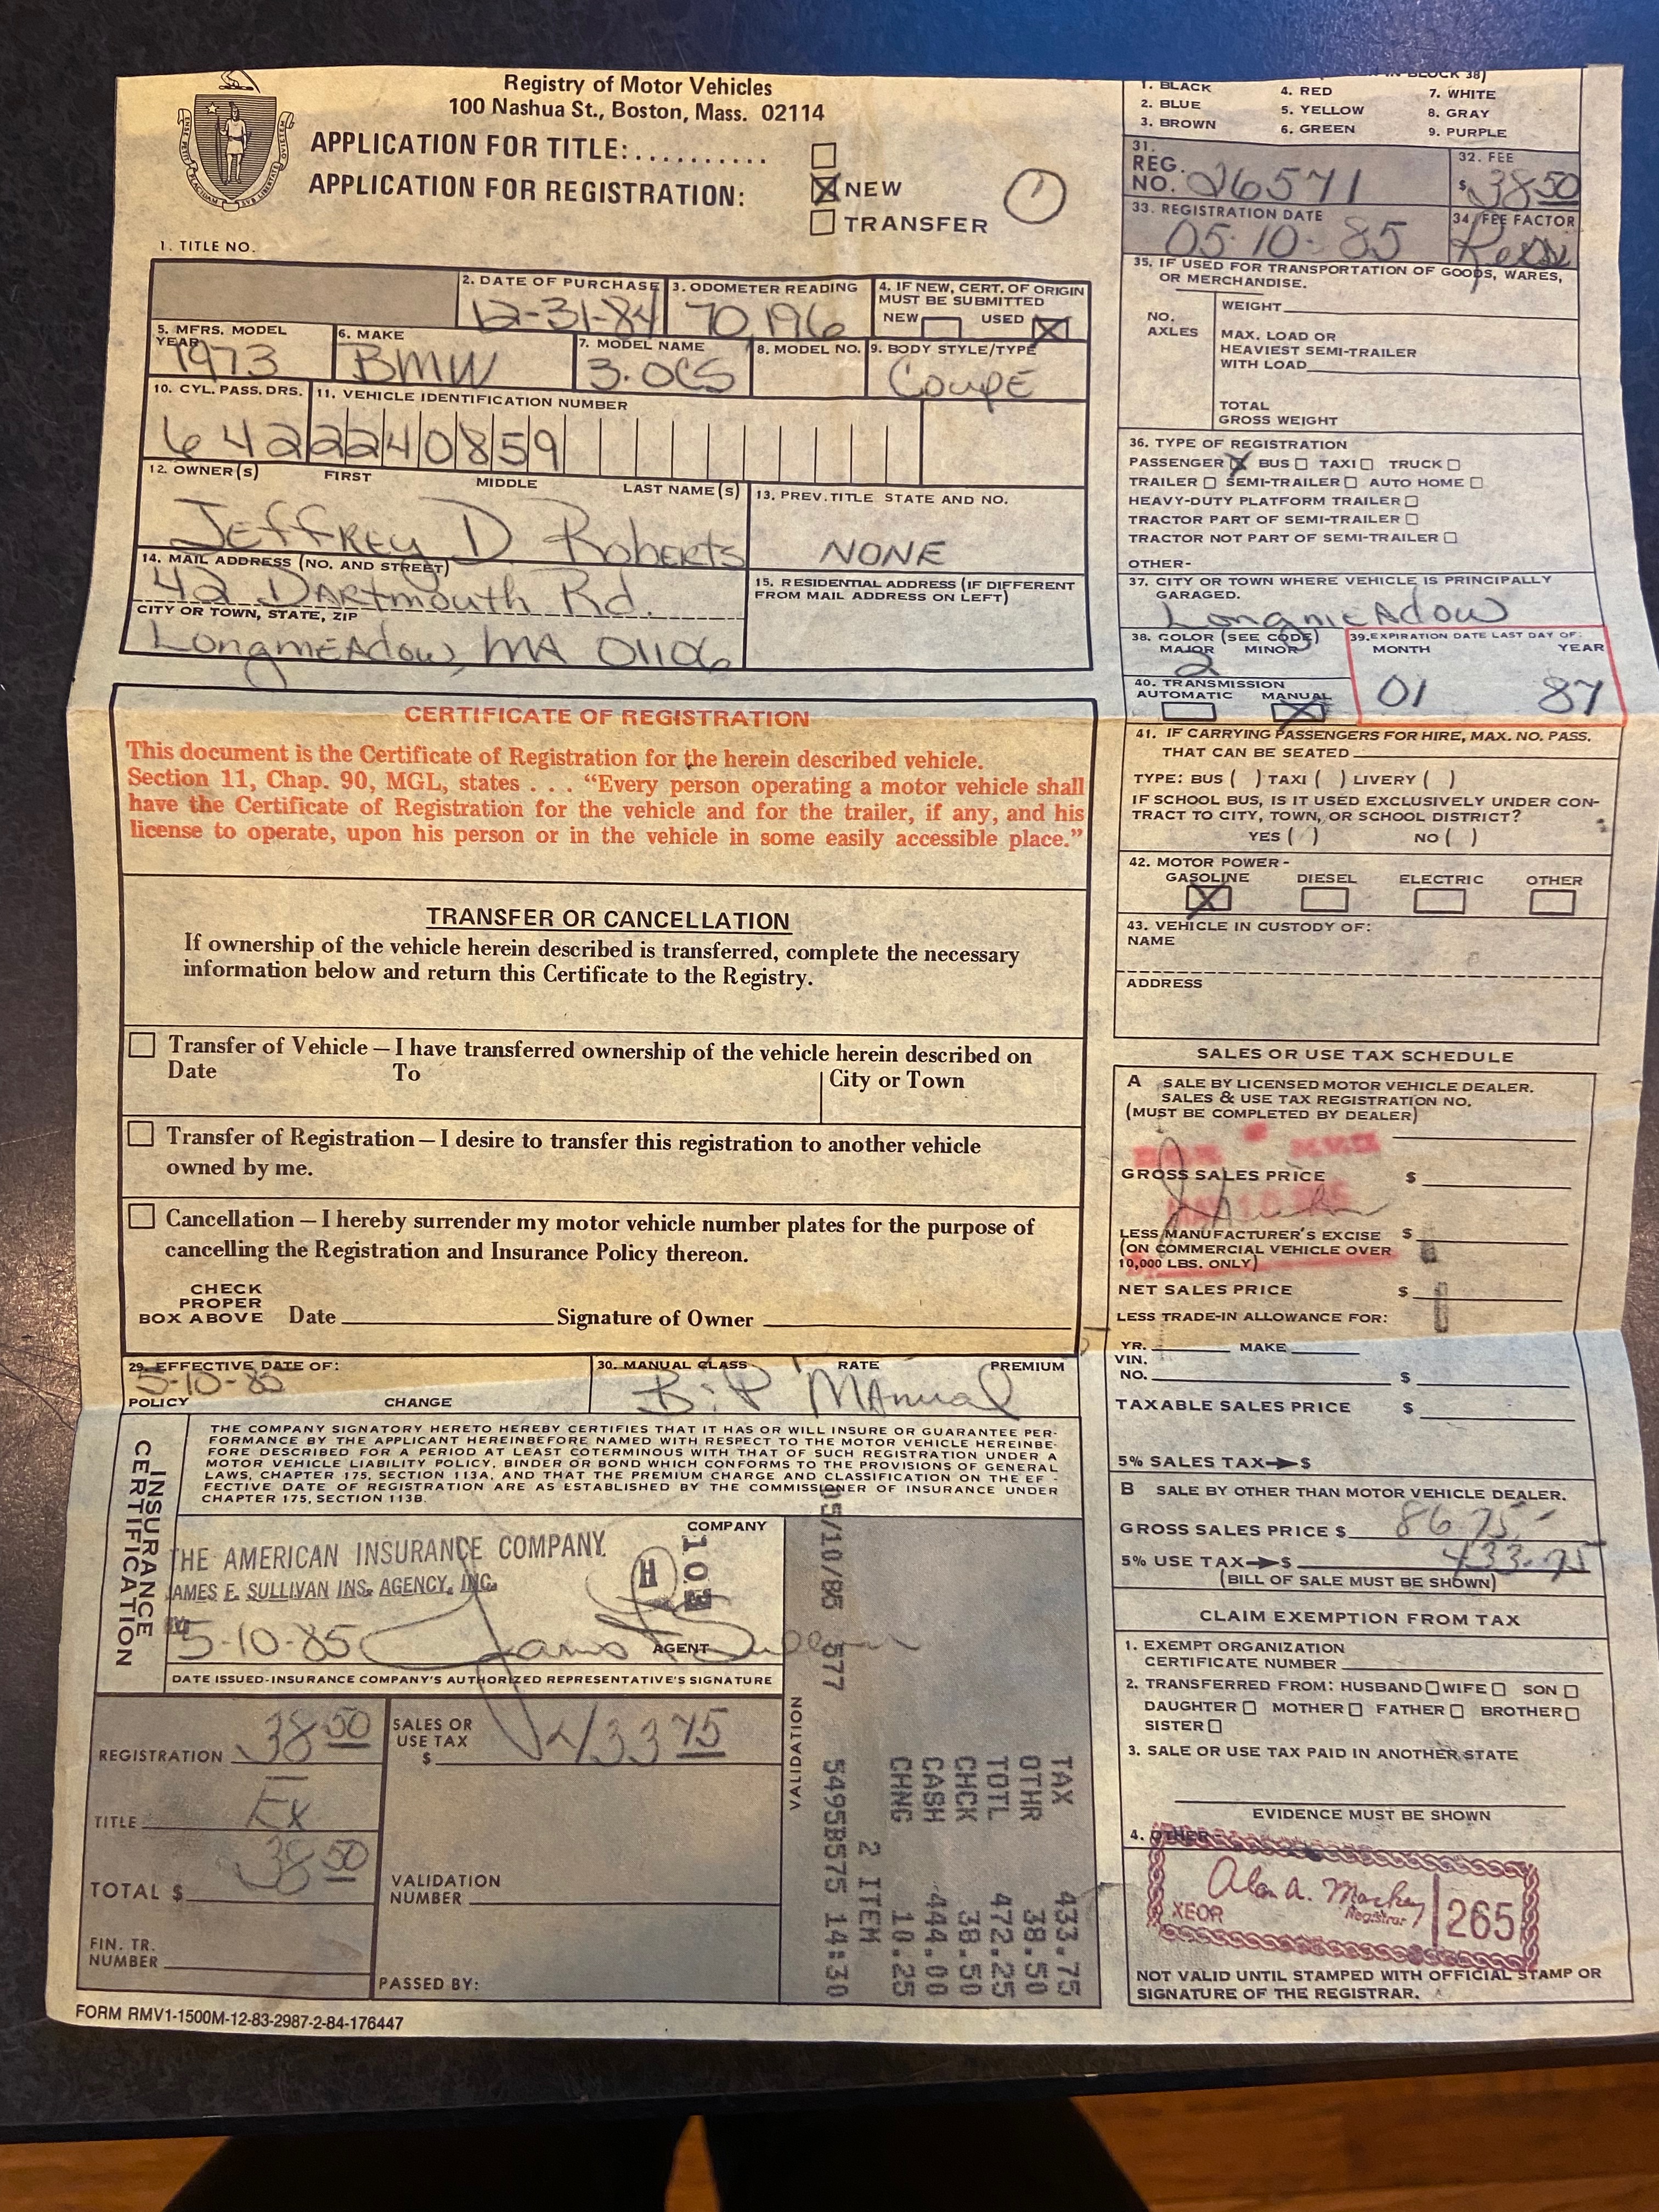 Registry of Motor Vehicles
100 Nashua St., Boston, Mass. 02114
APPLICATION FOR TITLE:..........
APPLICATION FOR REGISTRATION:
NEW
TRANSFER
1
1. TITLE NO.
2. DATE OF PURCHASE
12-31-84
3. ODOMETER READING
70,196
4. IF NEW, CERT. OF ORIGIN
MUST BE SUBMITTED
NEW USED
5. MFRS. MODEL
YEAR
1973
6. MAKE
BMW
7. MODEL NAME
3.0CS
8. MODEL NO.
9. BODY STYLE/TYPE
COUPE
10. CYL. PASS. DRS.
6 4 2
11. VEHICLE IDENTIFICATION NUMBER
2240859
12. OWNER(S) FIRST MIDDLE LAST NAME(S)
Jeffrey D. Roberts
13. PREV. TITLE STATE AND NO.
NONE
14. MAIL ADDRESS (NO. AND STREET)
42 Dartmouth Rd.
CITY OR TOWN, STATE, ZIP
Longmeadow, MA 01106
15. RESIDENTIAL ADDRESS (IF DIFFERENT
FROM MAIL ADDRESS ON LEFT)
CERTIFICATE OF REGISTRATION
This document is the Certificate of Registration for the herein described vehicle.
Section 11, Chap. 90, MGL, states . . . “Every person operating a motor vehicle shall
have the Certificate of Registration for the vehicle and for the trailer, if any, and his
license to operate, upon his person or in the vehicle in some easily accessible place.”
TRANSFER OR CANCELLATION
If ownership of the vehicle herein described is transferred, complete the necessary
information below and return this Certificate to the Registry.
Transfer of Vehicle — I have transferred ownership of the vehicle herein described on
Date To City or Town
Transfer of Registration — I desire to transfer this registration to another vehicle
owned by me.
Cancellation — I hereby surrender my motor vehicle number plates for the purpose of
cancelling the Registration and Insurance Policy thereon.
CHECK
PROPER
BOX ABOVE Date Signature of Owner
29. EFFECTIVE DATE OF:
5-10-85
POLICY CHANGE
30. MANUAL CLASS RATE PREMIUM
Manual
INSURANCE
CERTIFICATION
THE COMPANY SIGNATORY HERETO HEREBY CERTIFIES THAT IT HAS OR WILL INSURE OR GUARANTEE PER-
FORMANCE BY THE APPLICANT HEREINBEFORE NAMED WITH RESPECT TO THE MOTOR VEHICLE HEREINBE-
FORE DESCRIBED FOR A PERIOD AT LEAST COTERMINOUS WITH THAT OF SUCH REGISTRATION UNDER A
MOTOR VEHICLE LIABILITY POLICY, BINDER OR BOND WHICH CONFORMS TO THE PROVISIONS OF GENERAL
LAWS, CHAPTER 175, SECTION 113A, AND THAT THE PREMIUM CHARGE AND CLASSIFICATION ON THE EF-
FECTIVE DATE OF REGISTRATION ARE AS ESTABLISHED BY THE COMMISSIONER OF INSURANCE UNDER
CHAPTER 175, SECTION 113B.
THE AMERICAN INSURANCE COMPANY.
JAMES E. SULLIVAN INS. AGENCY, INC.
COMPANY
H
5-10-85
AGENT
DATE ISSUED-INSURANCE COMPANY'S AUTHORIZED REPRESENTATIVE'S SIGNATURE
REGISTRATION 38.50
TITLE Ex
TOTAL $ 38.50
FIN. TR.
NUMBER
SALES OR
USE TAX
$ 433 75
VALIDATION
NUMBER
PASSED BY:
VALIDATION
TAX 433.75
OTHR 38.50
TOTL 472.25
CHCK 38.50
CASH 444.00
CHNG 10.25
2 ITEM
05/10/85 577 5495B575 14:30
FORM RMV1-1500M-12-83-2987-2-84-176447
IN BLOCK 38)
1. BLACK 4. RED 7. WHITE
2. BLUE 5. YELLOW 8. GRAY
3. BROWN 6. GREEN 9. PURPLE
31.
REG.
NO. 26571
32. FEE
$ 38 50
33. REGISTRATION DATE
05-10-85
34. FEE FACTOR
35. IF USED FOR TRANSPORTATION OF GOODS, WARES,
OR MERCHANDISE.
NO.
AXLES
WEIGHT
MAX. LOAD OR
HEAVIEST SEMI-TRAILER
WITH LOAD
TOTAL
GROSS WEIGHT
36. TYPE OF REGISTRATION
PASSENGER BUS TAXI TRUCK
TRAILER SEMI-TRAILER AUTO HOME
HEAVY-DUTY PLATFORM TRAILER
TRACTOR PART OF SEMI-TRAILER
TRACTOR NOT PART OF SEMI-TRAILER
OTHER-
37. CITY OR TOWN WHERE VEHICLE IS PRINCIPALLY
GARAGED.
Longmeadow
38. COLOR (SEE CODE)
MAJOR MINOR
2
39. EXPIRATION DATE LAST DAY OF:
MONTH YEAR
01 87
40. TRANSMISSION
AUTOMATIC MANUAL
41. IF CARRYING PASSENGERS FOR HIRE, MAX. NO. PASS.
THAT CAN BE SEATED
TYPE: BUS ( ) TAXI ( ) LIVERY ( )
IF SCHOOL BUS, IS IT USED EXCLUSIVELY UNDER CON-
TRACT TO CITY, TOWN, OR SCHOOL DISTRICT?
YES ( ) NO ( )
42. MOTOR POWER-
GASOLINE DIESEL ELECTRIC OTHER
43. VEHICLE IN CUSTODY OF:
NAME
ADDRESS
SALES OR USE TAX SCHEDULE
A SALE BY LICENSED MOTOR VEHICLE DEALER.
SALES & USE TAX REGISTRATION NO.
(MUST BE COMPLETED BY DEALER)
GROSS SALES PRICE $
LESS MANUFACTURER'S EXCISE $
(ON COMMERCIAL VEHICLE OVER
10,000 LBS. ONLY)
NET SALES PRICE $
LESS TRADE-IN ALLOWANCE FOR:
YR. MAKE
VIN.
NO. $
TAXABLE SALES PRICE $
5% SALES TAX→$
B SALE BY OTHER THAN MOTOR VEHICLE DEALER.
GROSS SALES PRICE $ 8675.-
5% USE TAX→$ 433.75
(BILL OF SALE MUST BE SHOWN)
CLAIM EXEMPTION FROM TAX
1. EXEMPT ORGANIZATION
CERTIFICATE NUMBER
2. TRANSFERRED FROM: HUSBAND WIFE SON
DAUGHTER MOTHER FATHER BROTHER
SISTER
3. SALE OR USE TAX PAID IN ANOTHER STATE
EVIDENCE MUST BE SHOWN
4. OTHER
Alan A. Mackey
Registrar
XEOR
265
NOT VALID UNTIL STAMPED WITH OFFICIAL STAMP OR
SIGNATURE OF THE REGISTRAR.